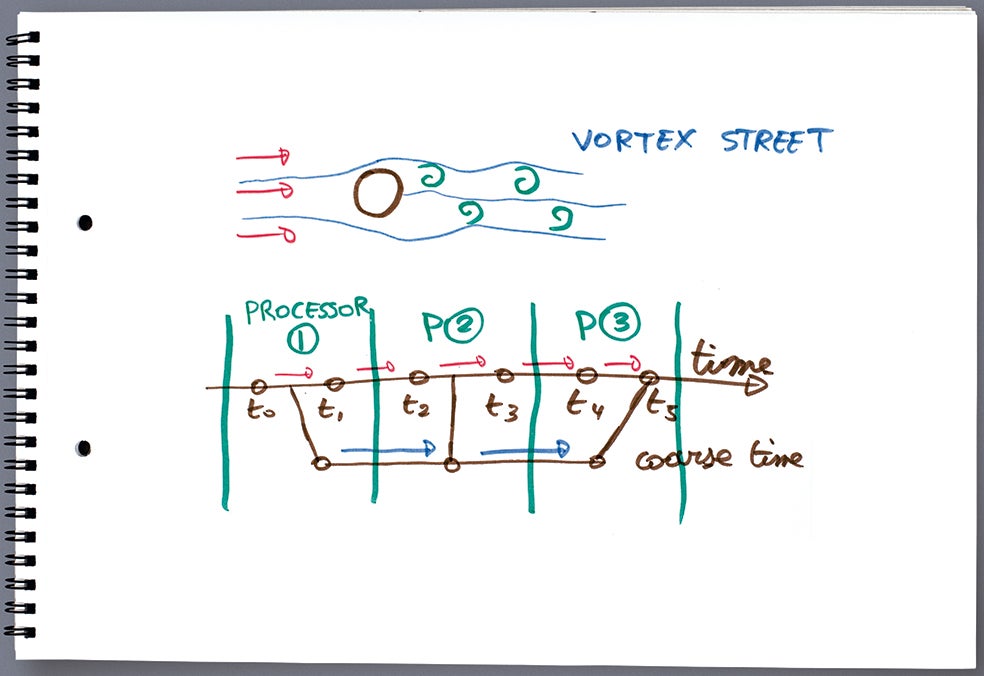 VORTEX STREET
PROCESSOR
1
P 2
P 3
time
t0 t1 t2 t3 t4 t5
coarse time